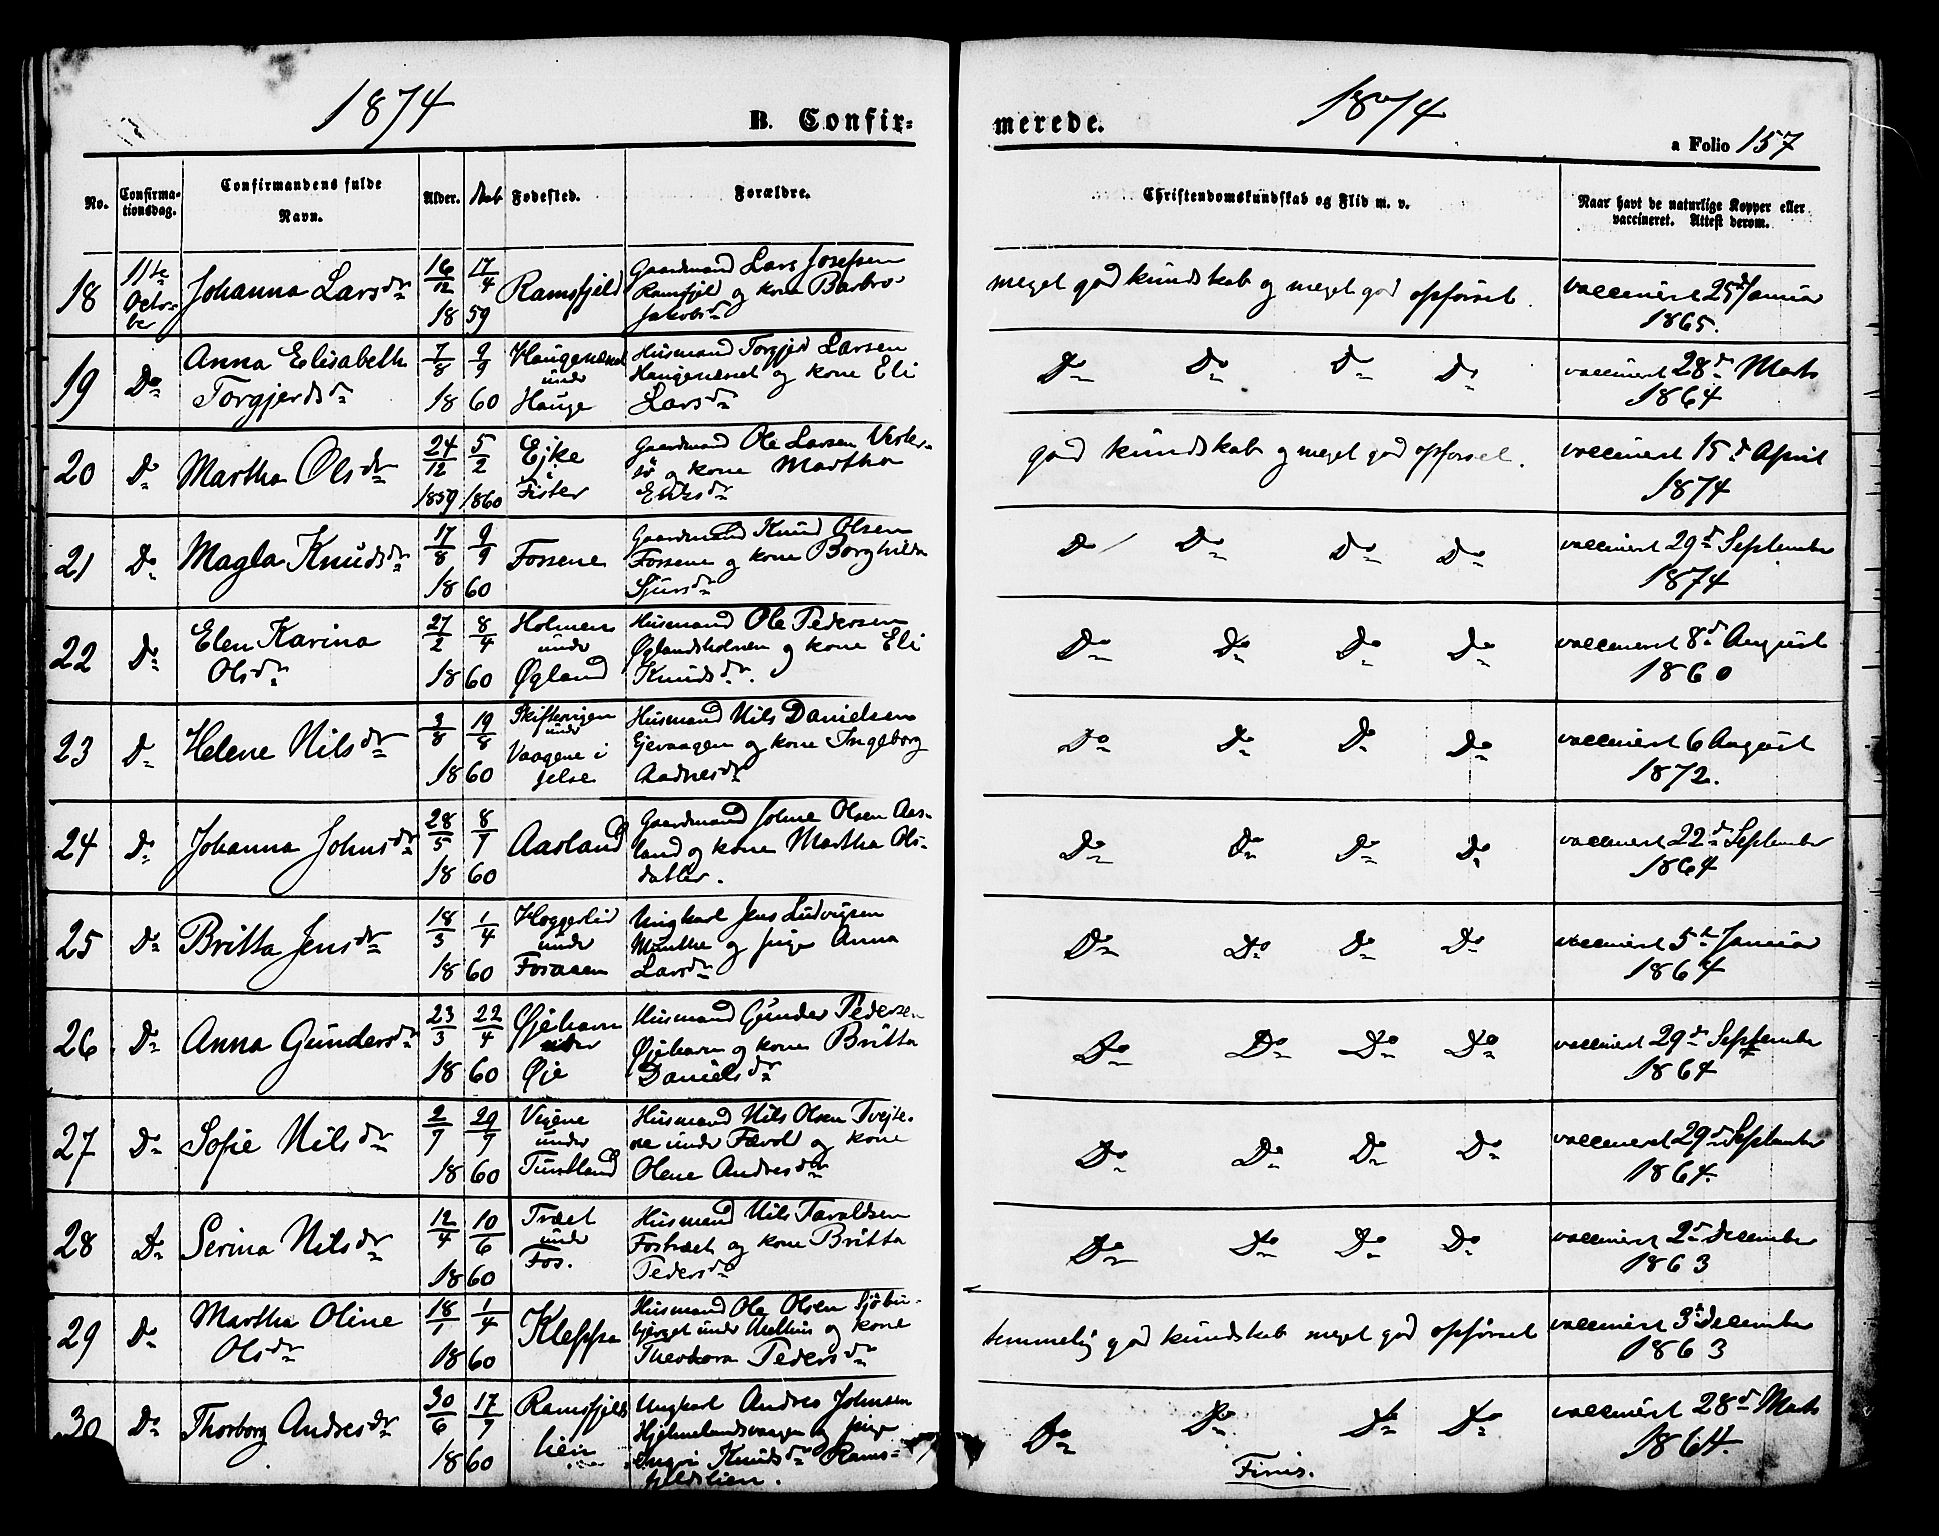 1874
B. Confirmerede.
1874
a Folio 157
No.
Confirmationsdag.
Confirmandens fulde Navn.
Alder.
Daab
Fødested.
Forældre.
Christendomskundskab og Flid m. v.
Naar havt de naturlige Kopper eller vaccineret. Attest derom.
18
11te Octover
Johanna Larsdr
16/12 18
17/4 59
Ramsfjeld
Gaardmand Lars Josefsen
Ramsfjel og kone Barbro
Jakobsdr
meget god kundskab og meget god opførsel.
vaccinert 25d Januar
1865.
19
Do
Anna Elisabeth
Torgjerdsdr
7/8 18
9/9 60
Haugenæset
under
Hauge
Husmand Torgjer Larsen
Haugenæset og kone Eli
Larsdr
Do Do Do Do
vaccinert 28d Marts
1864
20
Do
Martha Olsdr
24/12 1859
5/2 1860
Ejke
i
Fister
Gaardmand Ole Larsen Vester-
sø og kone Martha
Eriksdr
god kundskab og meget god opførsel.
vaccinert 15d April
1874
21
Do
Magla Knudsdr
17/8 18
9/9 60
Fossene
Gaardmand Knud Olsen
Fossene og kone Borghilda
Sjursdr
Do Do Do Do
vaccinert 29d September
1874
22
Do
Elen Karina
Olsdr
27/2 18
8/4 60
Holmen
under
Øgland
Husmand Ole Pedersen
Øglandsholmen og kone Eli
Knudsdr.
Do Do Do Do
vaccineret 8d August
1860
23
Do
Helene Nilsdr
3/8 18
19/8 60
under
Vaagene i
Jelse
Husmand Nils Danielsen
og kone Ingeborg
Aadnesdr
Do Do Do Do
vaccinert 6 August
1872.
24
Do
Johanna Johnsdr
28/5 18
8/7 60
Aasland
Gaardmand Johne Olsen Aas-
land og kone Martha Ols-
datter.
Do Do Do Do
vaccinert 22d September
1864
25
Do
Britta Jensdr
18/3 18
1/4 60
Heggerlid
under
Fosaaen
Ungkarl Jens Ludvigsen
Munthe og pige Anna
Larsdr
Do Do Do Do
vaccinert 5t Januar
1864
26
Do
Anna Gundersdr
23/3 18
22/4 60
Øjehavn
under
Øje
Husmand Gunder Pedersen
Øjehavn og kone Britta
Danielsdr
Do Do Do Do
vaccinert 29d September
1864
27
Do
Sofie Nilsdr
2/7 18
29/7 60
Vigene
under
Tuntland
Husmand Nils Olsen Tvejte-
ne under Fævol og kone
Olene Andresdr
Do Do Do Do
vaccineret 29d September
1864.
28
Do
Serina Nilsdr
12/4 18
10/6 60
Træet
under
Fos.
Husmand Nils Taraldsen
Fostræet og kone Britta
Pedersdr
Do Do Do Do
vaccinert 2d December
1863
29
Do
Martha Oline
Olsdr
18/1 18
1/4 60
Kleppa
Husmand Ole Olsen Sjøbu-
bjerget under Melhus og kone
Theodora Pedersdr
temmelig god kundskab meget god opførsel
vaccinert 3d December
1863
30
Do
Thorborg Andresdr
30/6 18
17/7 60
Ramsfjelds
lien
Ungkarl Andres Johnsen
Hjelmelandsvaagen og pige
Ingri Knudsdr Rams-
fjeldslien.
Do Do Do Do
vaccinert 28d Marts
1864.
Finis.